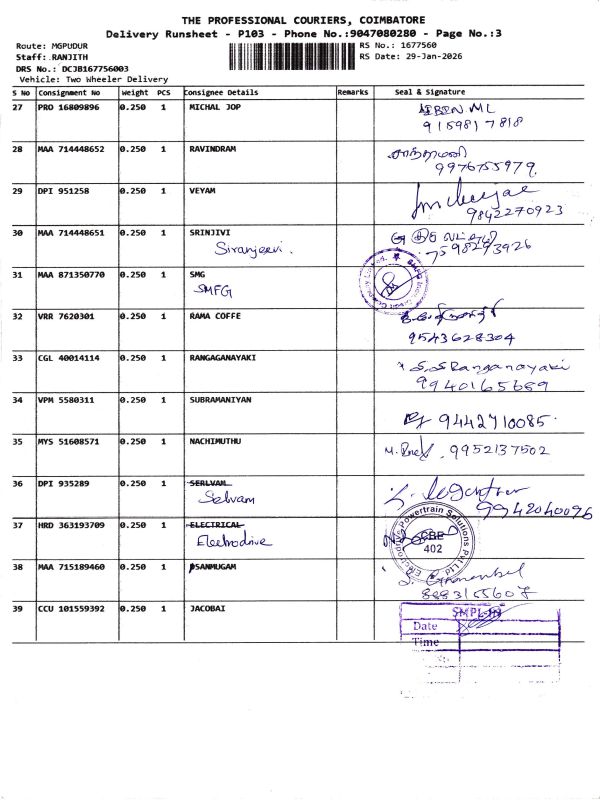 THE PROFESSIONAL COURIERS, COIMBATORE
Delivery Runsheet - P103 - Phone No.:9047080280 - Page No.:3
Route: MGPUDUR
RS No.: 1677560
Staff: RANJITH
RS Date: 29-Jan-2026
DRS No.: DCJB167756003
Vehicle: Two Wheeler Delivery
S No Consignment No Weight PCS Consignee Details Remarks Seal & Signature
27 PRO 16809896 0.250 1 MICHAL JOP
9159817818
28 MAA 714448652 0.250 1 RAVINDRAM
9976755979.
29 DPI 951258 0.250 1 VEYAM
9842270923
30 MAA 714448651 0.250 1 SRINJIVI
Siranjeevi. 7598293926
31 MAA 871350770 0.250 1 SMG
SMFG
32 VRR 7620301 0.250 1 RAMA COFFE
9543628304
33 CGL 40014114 0.250 1 RANGAGANAYAKI S.S Ranganayaki
9940165689
34 VPM 5580311 0.250 1 SUBRAMANIYAN
9442710085.
35 MYS 51608571 0.250 1 NACHIMUTHU
9952137502
36 DPI 935289 0.250 1 SERLVAM
Selvam
9942040096
37 HRD 363193709 0.250 1 ELECTRICAL
Electrodrive
Electrodrive Powertrain Solutions Pvt Ltd
CBE
402
38 MAA 715189460 0.250 1 SANMUGAM
8883155607
39 CCU 101559392 0.250 1 JACOBAI
SMPL-IN
Date
Time